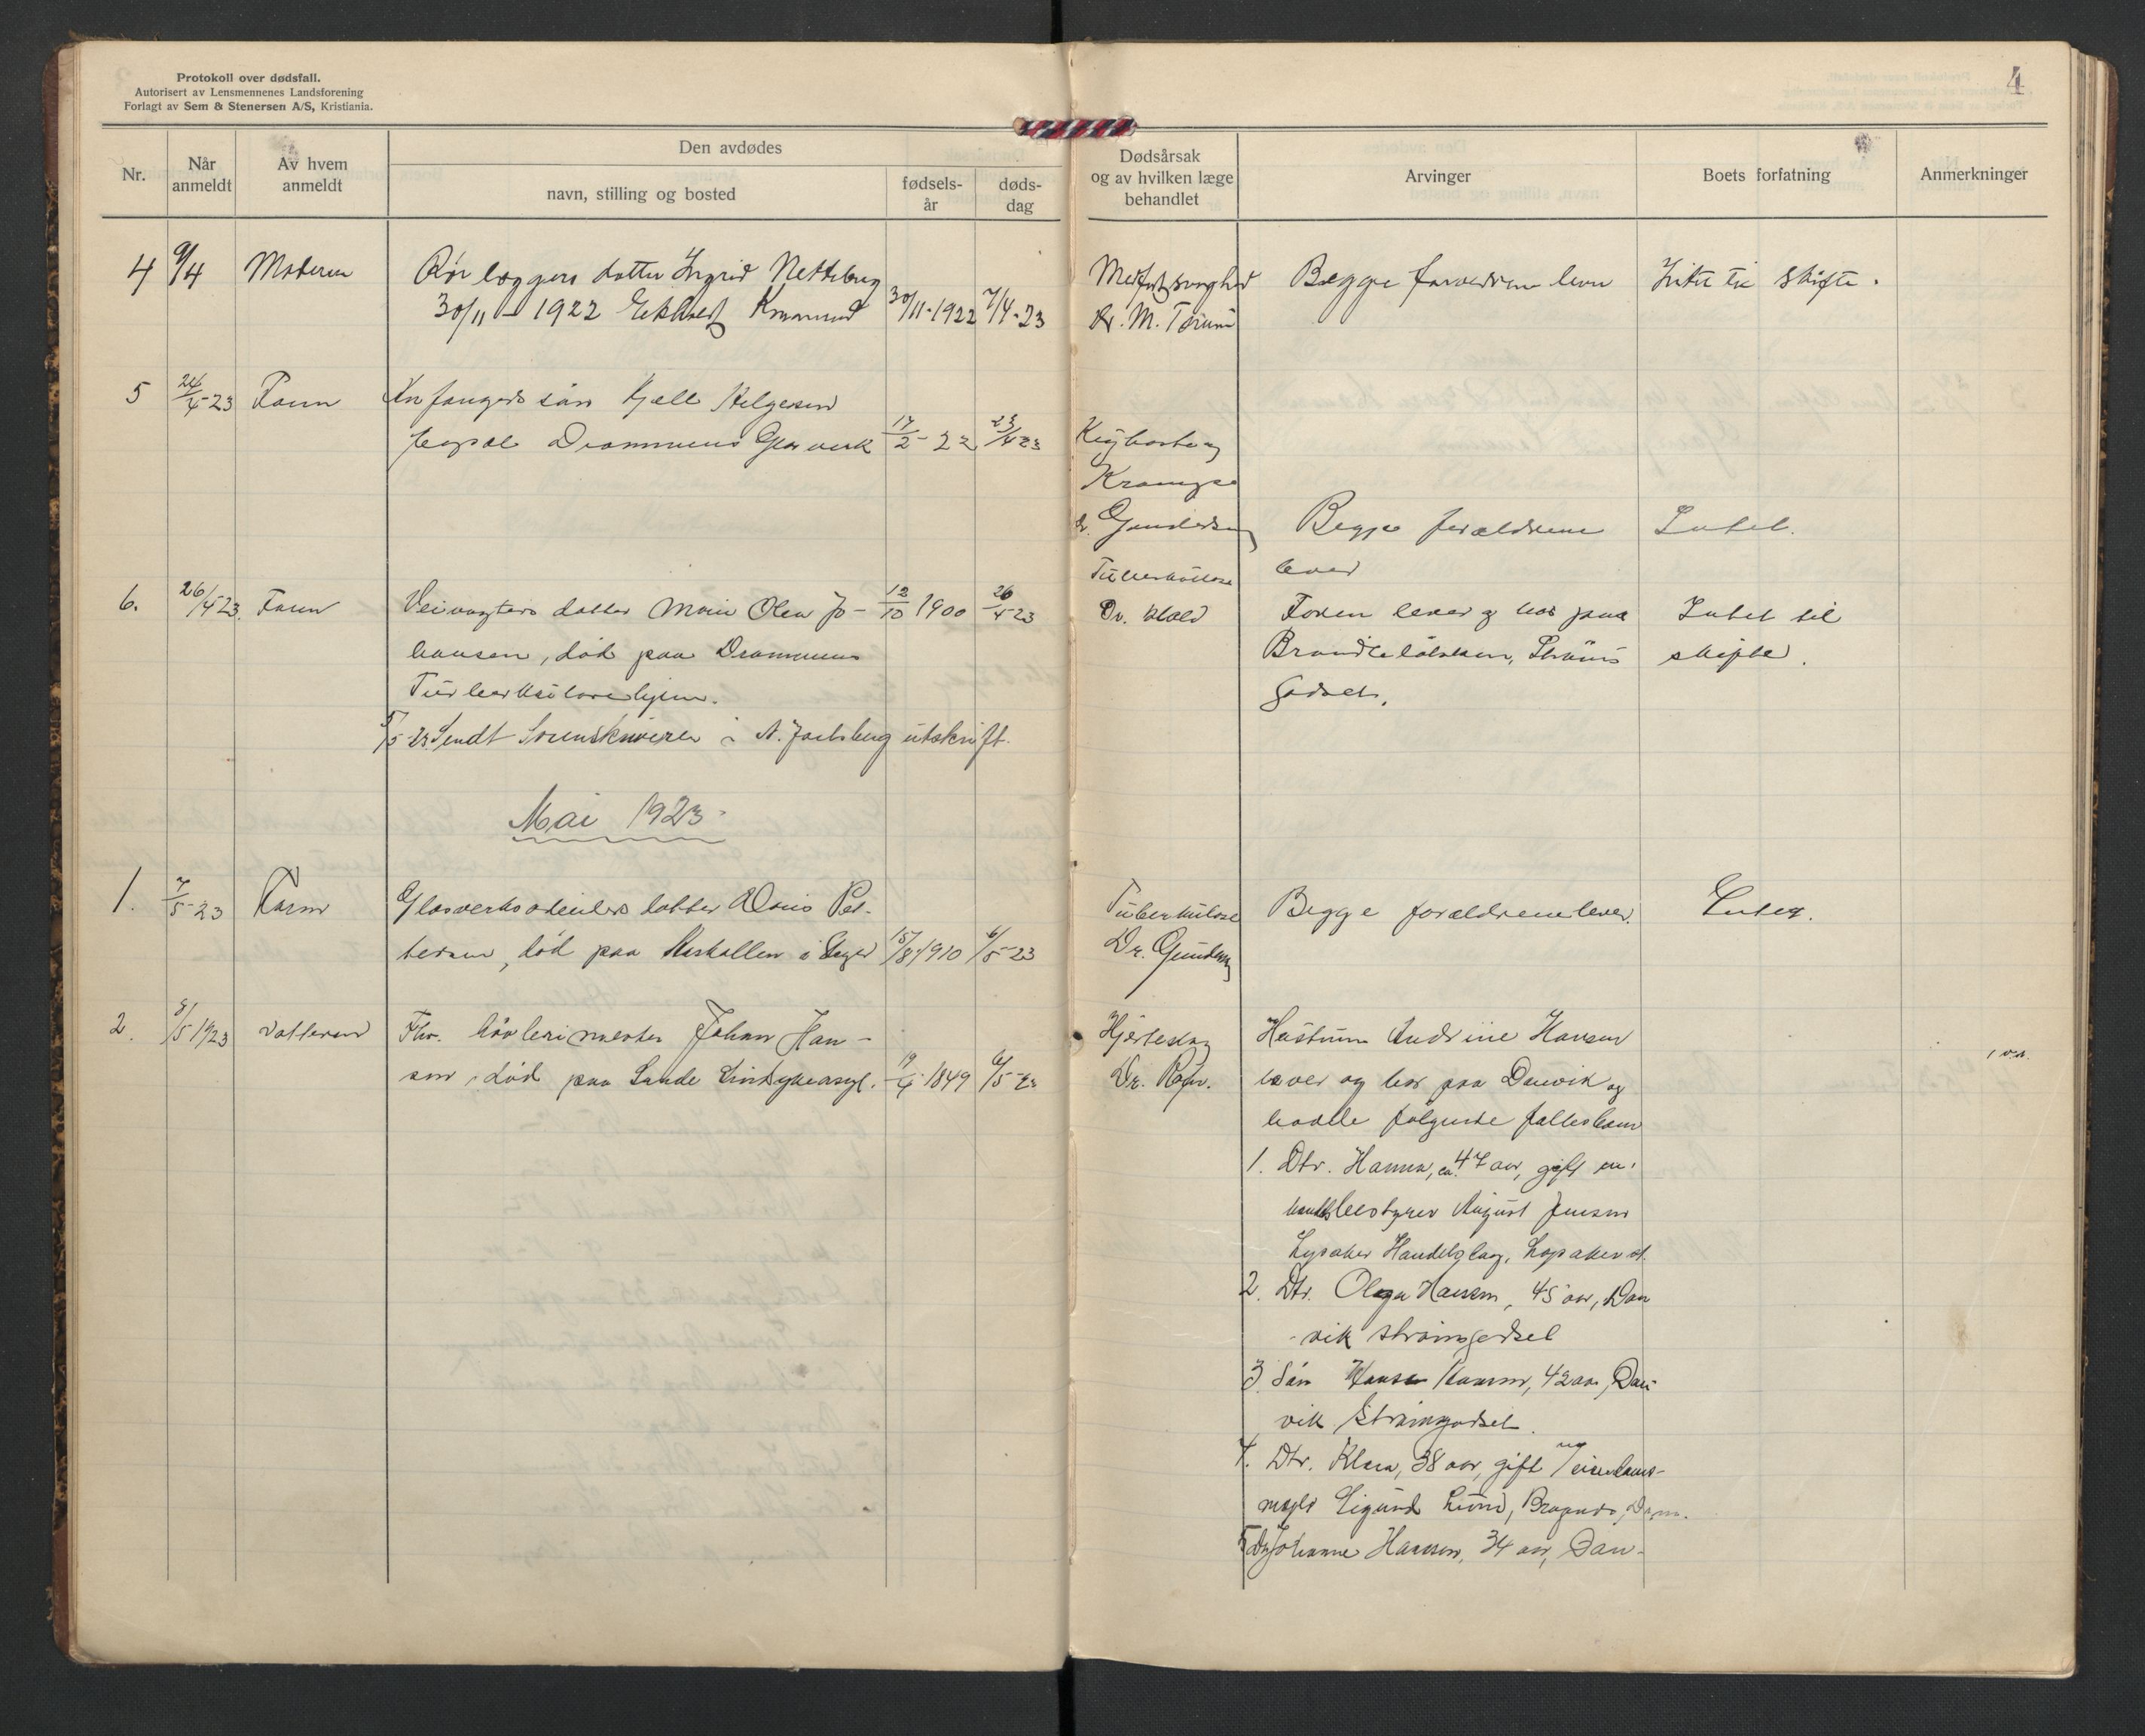 Protokoll over dødsfall.
Autorisert av Lensmennenes Landsforening
Forlagt av Sem & Stenersen A/S, Kristiania.
4
Nr.
Når anmeldt
Av hvem anmeldt
Den avdødes
navn, stilling og bosted
fødsels-år
døds-dag
Dødsårsak og av hvilken læge behandlet
Arvinger
Boets forfatning
Anmerkninger
4 9/4 Moderen
Rørlæggers datter Ingrid
30/11 - 1922 30/11-1922 7/4-23
Dr. M.
Begge forældrene lever
Intet til skifte.
5 24/4-23 Faren
søn Kjell Helgesen
Drammens Glasverk 17/2-22 23/4 23
Kighoste og
Krampe
Dr. Gundersen
Begge forældrene
lever
Intet.
6. 26/4 23. Faren
Veivogters datter Marie Olea Jo- 12/10 1900 26/4 23
hansen, død paa Drammens
Tuberkulosehjem.
5/5-23 Sendt Sorenskriveren i N. Jarlsberg utskrift.
Tuberkulose
Dr.
Faren lever og bor paa
Strøms
godset.
Intet til
skifte.
Mai 1923
1. 7/5-23 Faren
Glasverksarbeiders datter Doris Pet-
tersen, død paa i Skoger 15/8 1910 6/5-23
Tuberkulose
Dr. Gundersen
Begge forældrene lever.
Intet.
2. 8/5 1923 Datteren
Fhv. høvlerimester Johan Han-
sen, død paa Sande Sindsykeasyl. 19/4 1849 6/5-23
Hjerteslag
Dr.
Hustruen Andrine Hansen
lever og bor paa Danvik og
hadde følgende fællesbarn
1. Dtr. Hanna, ca. 47 aar, gift m.
August Jensen
Lysaker Handelslag, Lysaker st.
2. Dtr. Olga Hansen, 45 aar, Dan
-vik Strømsgodset
3. Søn Hansen, 42 aar, Dan-
vik Strømsgodset.
4. Dtr. Klara, 38 aar, gift
Sigurd Lund, Bragernes, Drm.
5. Dtr. Johanne Hansen, 34 aar, Dan-